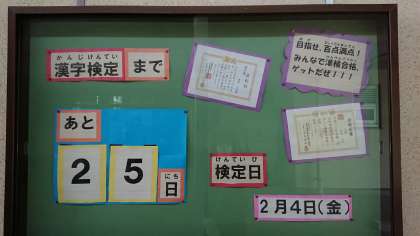 かんじけんてい
漢字検定 まで
目指せ、百点満点!
みんなで漢検合格、
ゲットだぜ!!!
あと
25
にち
日
けんていび
検定日
2月4日(金)